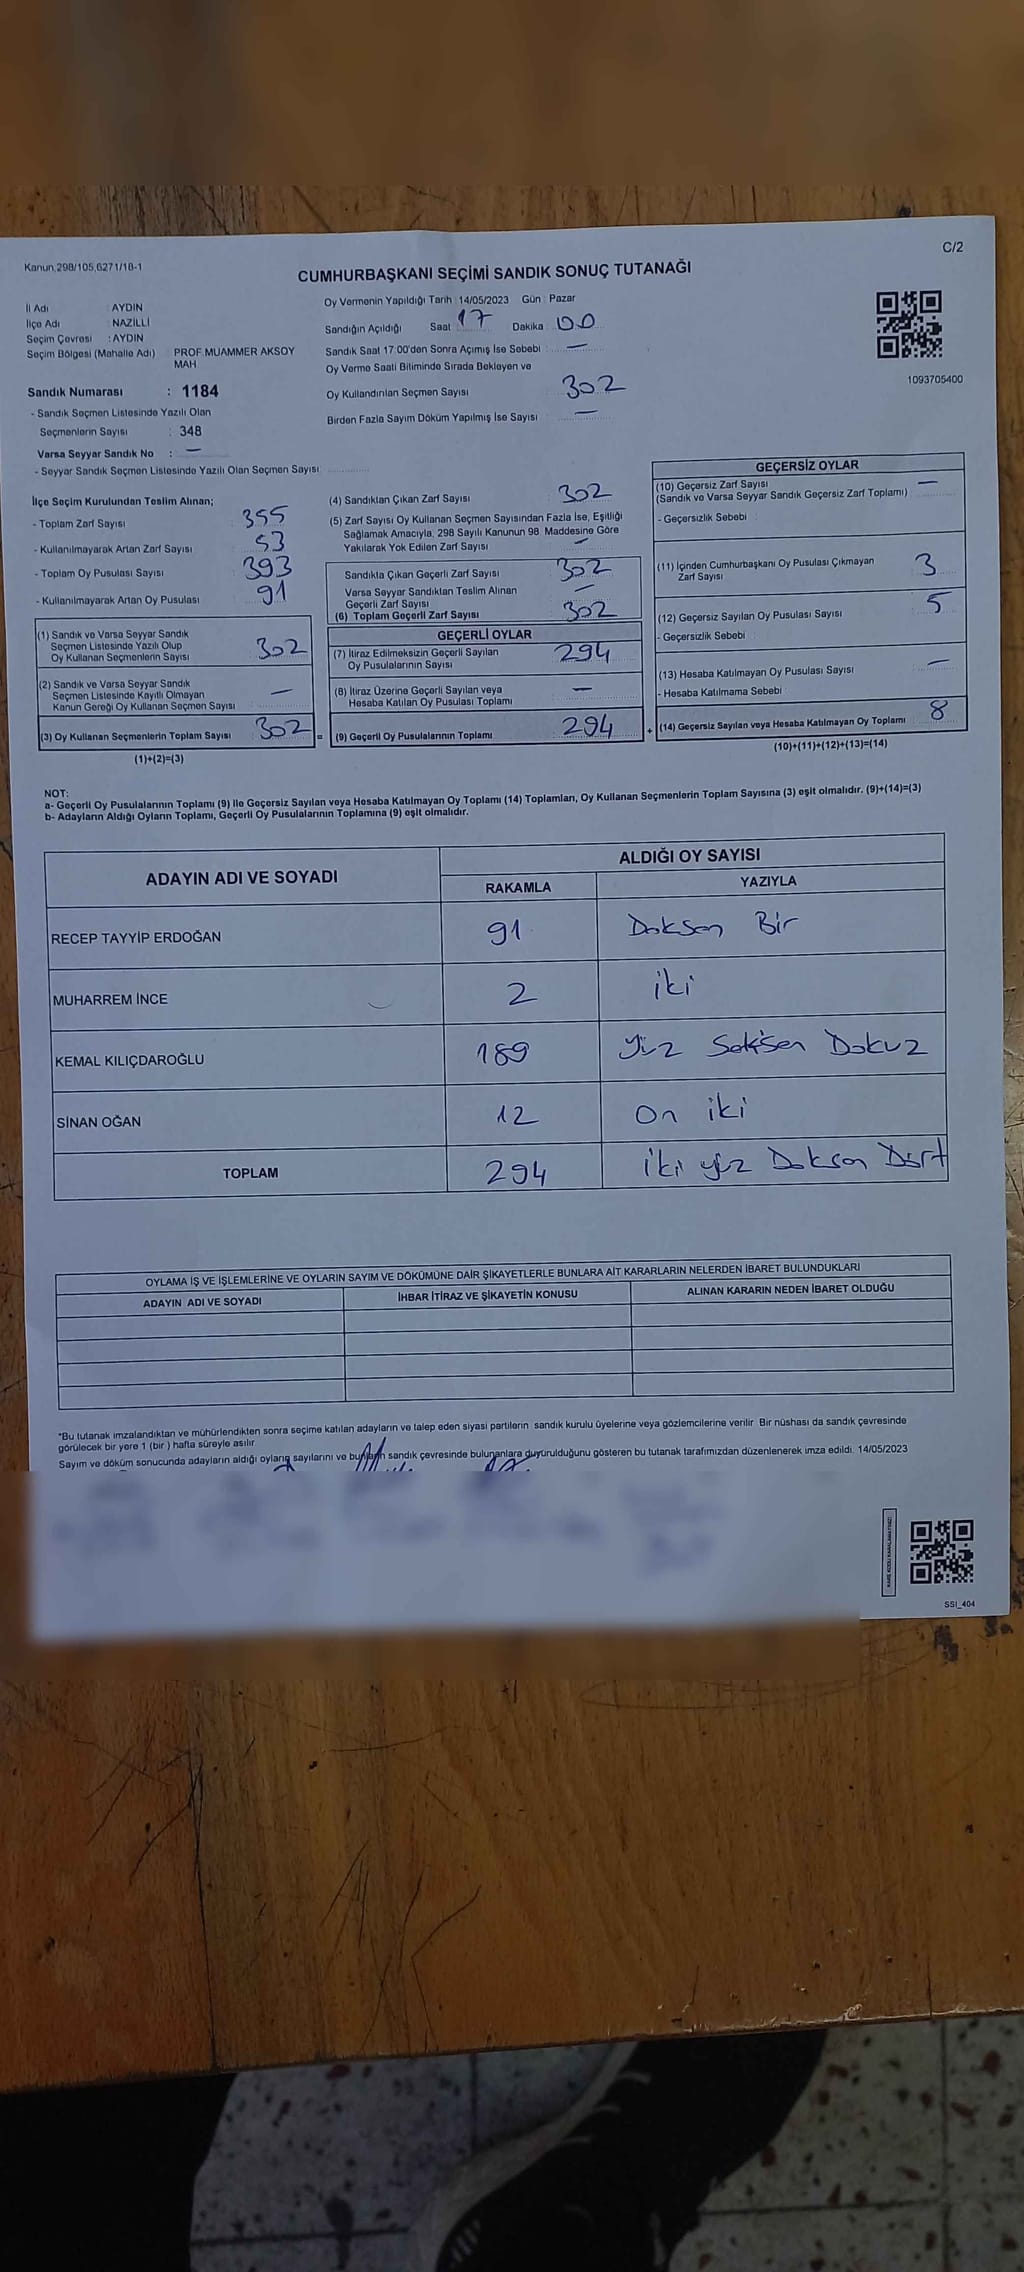 C/2
Kanun.298/105,6271/18-1
CUMHURBAŞKANI SEÇİMİ SANDIK SONUÇ TUTANAĞI
İl Adı : AYDIN
İlçe Adı : NAZİLLİ
Seçim Çevresi : AYDIN
Seçim Bölgesi (Mahalle Adı) PROF.MUAMMER AKSOY
MAH
Sandık Numarası : 1184
- Sandık Seçmen Listesinde Yazılı Olan
Seçmenlerin Sayısı : 348
Varsa Seyyar Sandık No : —
- Seyyar Sandık Seçmen Listesinde Yazılı Olan Seçmen Sayısı
Oy Vermenin Yapıldığı Tarih 14/05/2023 Gün : Pazar
Sandığın Açıldığı Saat 17 Dakika 00
Sandık Saat 17:00'den Sonra Açımış İse Sebebi : —
Oy Verme Saati Bitiminde Sırada Bekleyen ve
Oy Kullandırılan Seçmen Sayısı 302
Birden Fazla Sayım Döküm Yapılmış İse Sayısı —
1093705400
İlçe Seçim Kurulundan Teslim Alınan;
- Toplam Zarf Sayısı 355
- Kullanılmayarak Artan Zarf Sayısı 53
- Toplam Oy Pusulası Sayısı 393
- Kullanılmayarak Artan Oy Pusulası 91
(1) Sandık ve Varsa Seyyar Sandık
Seçmen Listesinde Yazılı Olup
Oy Kullanan Seçmenlerin Sayısı 302
(2) Sandık ve Varsa Seyyar Sandık
Seçmen Listesinde Kayıtlı Olmayan
Kanun Gereği Oy Kullanan Seçmen Sayısı —
(3) Oy Kullanan Seçmenlerin Toplam Sayısı 302 =
(1)+(2)=(3)
(4) Sandıktan Çıkan Zarf Sayısı 302
(5) Zarf Sayısı Oy Kullanan Seçmen Sayısından Fazla İse, Eşitliği
Sağlamak Amacıyla, 298 Sayılı Kanunun 98. Maddesine Göre
Yakılarak Yok Edilen Zarf Sayısı —
Sandıkta Çıkan Geçerli Zarf Sayısı 302
Varsa Seyyar Sandıktan Teslim Alınan
Geçerli Zarf Sayısı —
(6) Toplam Geçerli Zarf Sayısı 302
GEÇERLİ OYLAR
(7) İtiraz Edilmeksizin Geçerli Sayılan
Oy Pusulalarının Sayısı 294
(8) İtiraz Üzerine Geçerli Sayılan veya
Hesaba Katılan Oy Pusulası Toplamı —
(9) Geçerli Oy Pusulalarının Toplamı 294 +
GEÇERSİZ OYLAR
(10) Geçersiz Zarf Sayısı
(Sandık ve Varsa Seyyar Sandık Geçersiz Zarf Toplamı) —
- Geçersizlik Sebebi :
(11) İçinden Cumhurbaşkanı Oy Pusulası Çıkmayan
Zarf Sayısı 3
(12) Geçersiz Sayılan Oy Pusulası Sayısı 5
- Geçersizlik Sebebi :
(13) Hesaba Katılmayan Oy Pusulası Sayısı —
- Hesaba Katılmama Sebebi :
(14) Geçersiz Sayılan veya Hesaba Katılmayan Oy Toplamı 8
(10)+(11)+(12)+(13)=(14)
NOT:
a- Geçerli Oy Pusulalarının Toplamı (9) ile Geçersiz Sayılan veya Hesaba Katılmayan Oy Toplamı (14) Toplamları, Oy Kullanan Seçmenlerin Toplam Sayısına (3) eşit olmalıdır. (9)+(14)=(3)
b- Adayların Aldığı Oyların Toplamı, Geçerli Oy Pusulalarının Toplamına (9) eşit olmalıdır.
ADAYIN ADI VE SOYADI ALDIĞI OY SAYISI
RAKAMLA YAZIYLA
RECEP TAYYİP ERDOĞAN 91 Doksan Bir
MUHARREM İNCE 2 iki
KEMAL KILIÇDAROĞLU 189 Yüz Seksen Dokuz
SİNAN OĞAN 12 On iki
TOPLAM 294 iki yüz Doksan Dört
OYLAMA İŞ VE İŞLEMLERİNE VE OYLARIN SAYIM VE DÖKÜMÜNE DAİR ŞİKAYETLERLE BUNLARA AİT KARARLARIN NELERDEN İBARET BULUNDUKLARI
ADAYIN ADI VE SOYADI İHBAR İTİRAZ VE ŞİKAYETİN KONUSU ALINAN KARARIN NEDEN İBARET OLDUĞU
*Bu tutanak imzalandıktan ve mühürlendikten sonra seçime katılan adayların ve talep eden siyasi partilerin sandık kurulu üyelerine veya gözlemcilerine verilir. Bir nüshası da sandık çevresinde
görülecek bir yere 1 (bir) hafta süreyle asılır.
Sayım ve döküm sonucunda adayların aldığı oyların sayılarını ve bunların sandık çevresinde bulunanlara duyurulduğunu gösteren bu tutanak tarafımızdan düzenlenerek imza edildi. 14/05/2023
SSI_404